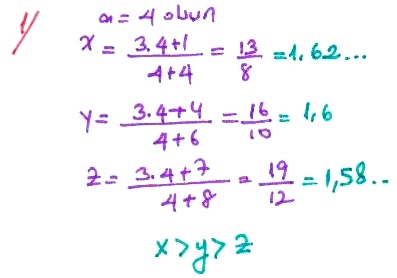 a = 4 olsun
x = \frac{3.4+1}{4+4} = \frac{13}{8} = 1.62...
y = \frac{3.4+4}{4+6} = \frac{16}{10} = 1,6
z = \frac{3.4+7}{4+8} = \frac{19}{12} = 1,58..
x > y > z